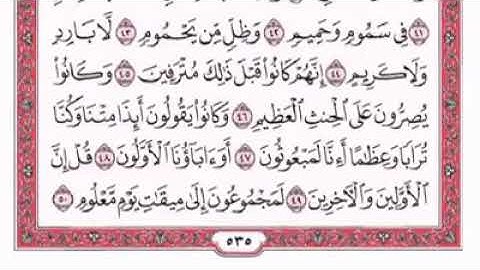 ٤١ فِي سَمُومٍ وَحَمِيمٍ ٤٢ وَظِلٍّ مِّن يَحْمُومٍ ٤٣ لَّا بَارِدٍ
وَلَا كَرِيمٍ ٤٤ إِنَّهُمْ كَانُوا۟ قَبْلَ ذَٰلِكَ مُتْرَفِينَ ٤٥ وَكَانُوا۟
يُصِرُّونَ عَلَى ٱلْحِنثِ ٱلْعَظِيمِ ٤٦ وَكَانُوا۟ يَقُولُونَ أَئِذَا مِتْنَا وَكُنَّا
تُرَابًا وَعِظَٰمًا أَءِنَّا لَمَبْعُوثُونَ ٤٧ أَوَءَابَآؤُنَا ٱلْأَوَّلُونَ ٤٨ قُلْ إِنَّ
ٱلْأَوَّلِينَ وَٱلْآخِرِينَ ٤٩ لَمَجْمُوعُونَ إِلَىٰ مِيقَٰتِ يَوْمٍ مَّعْلُومٍ ٥٠
٥٣٥